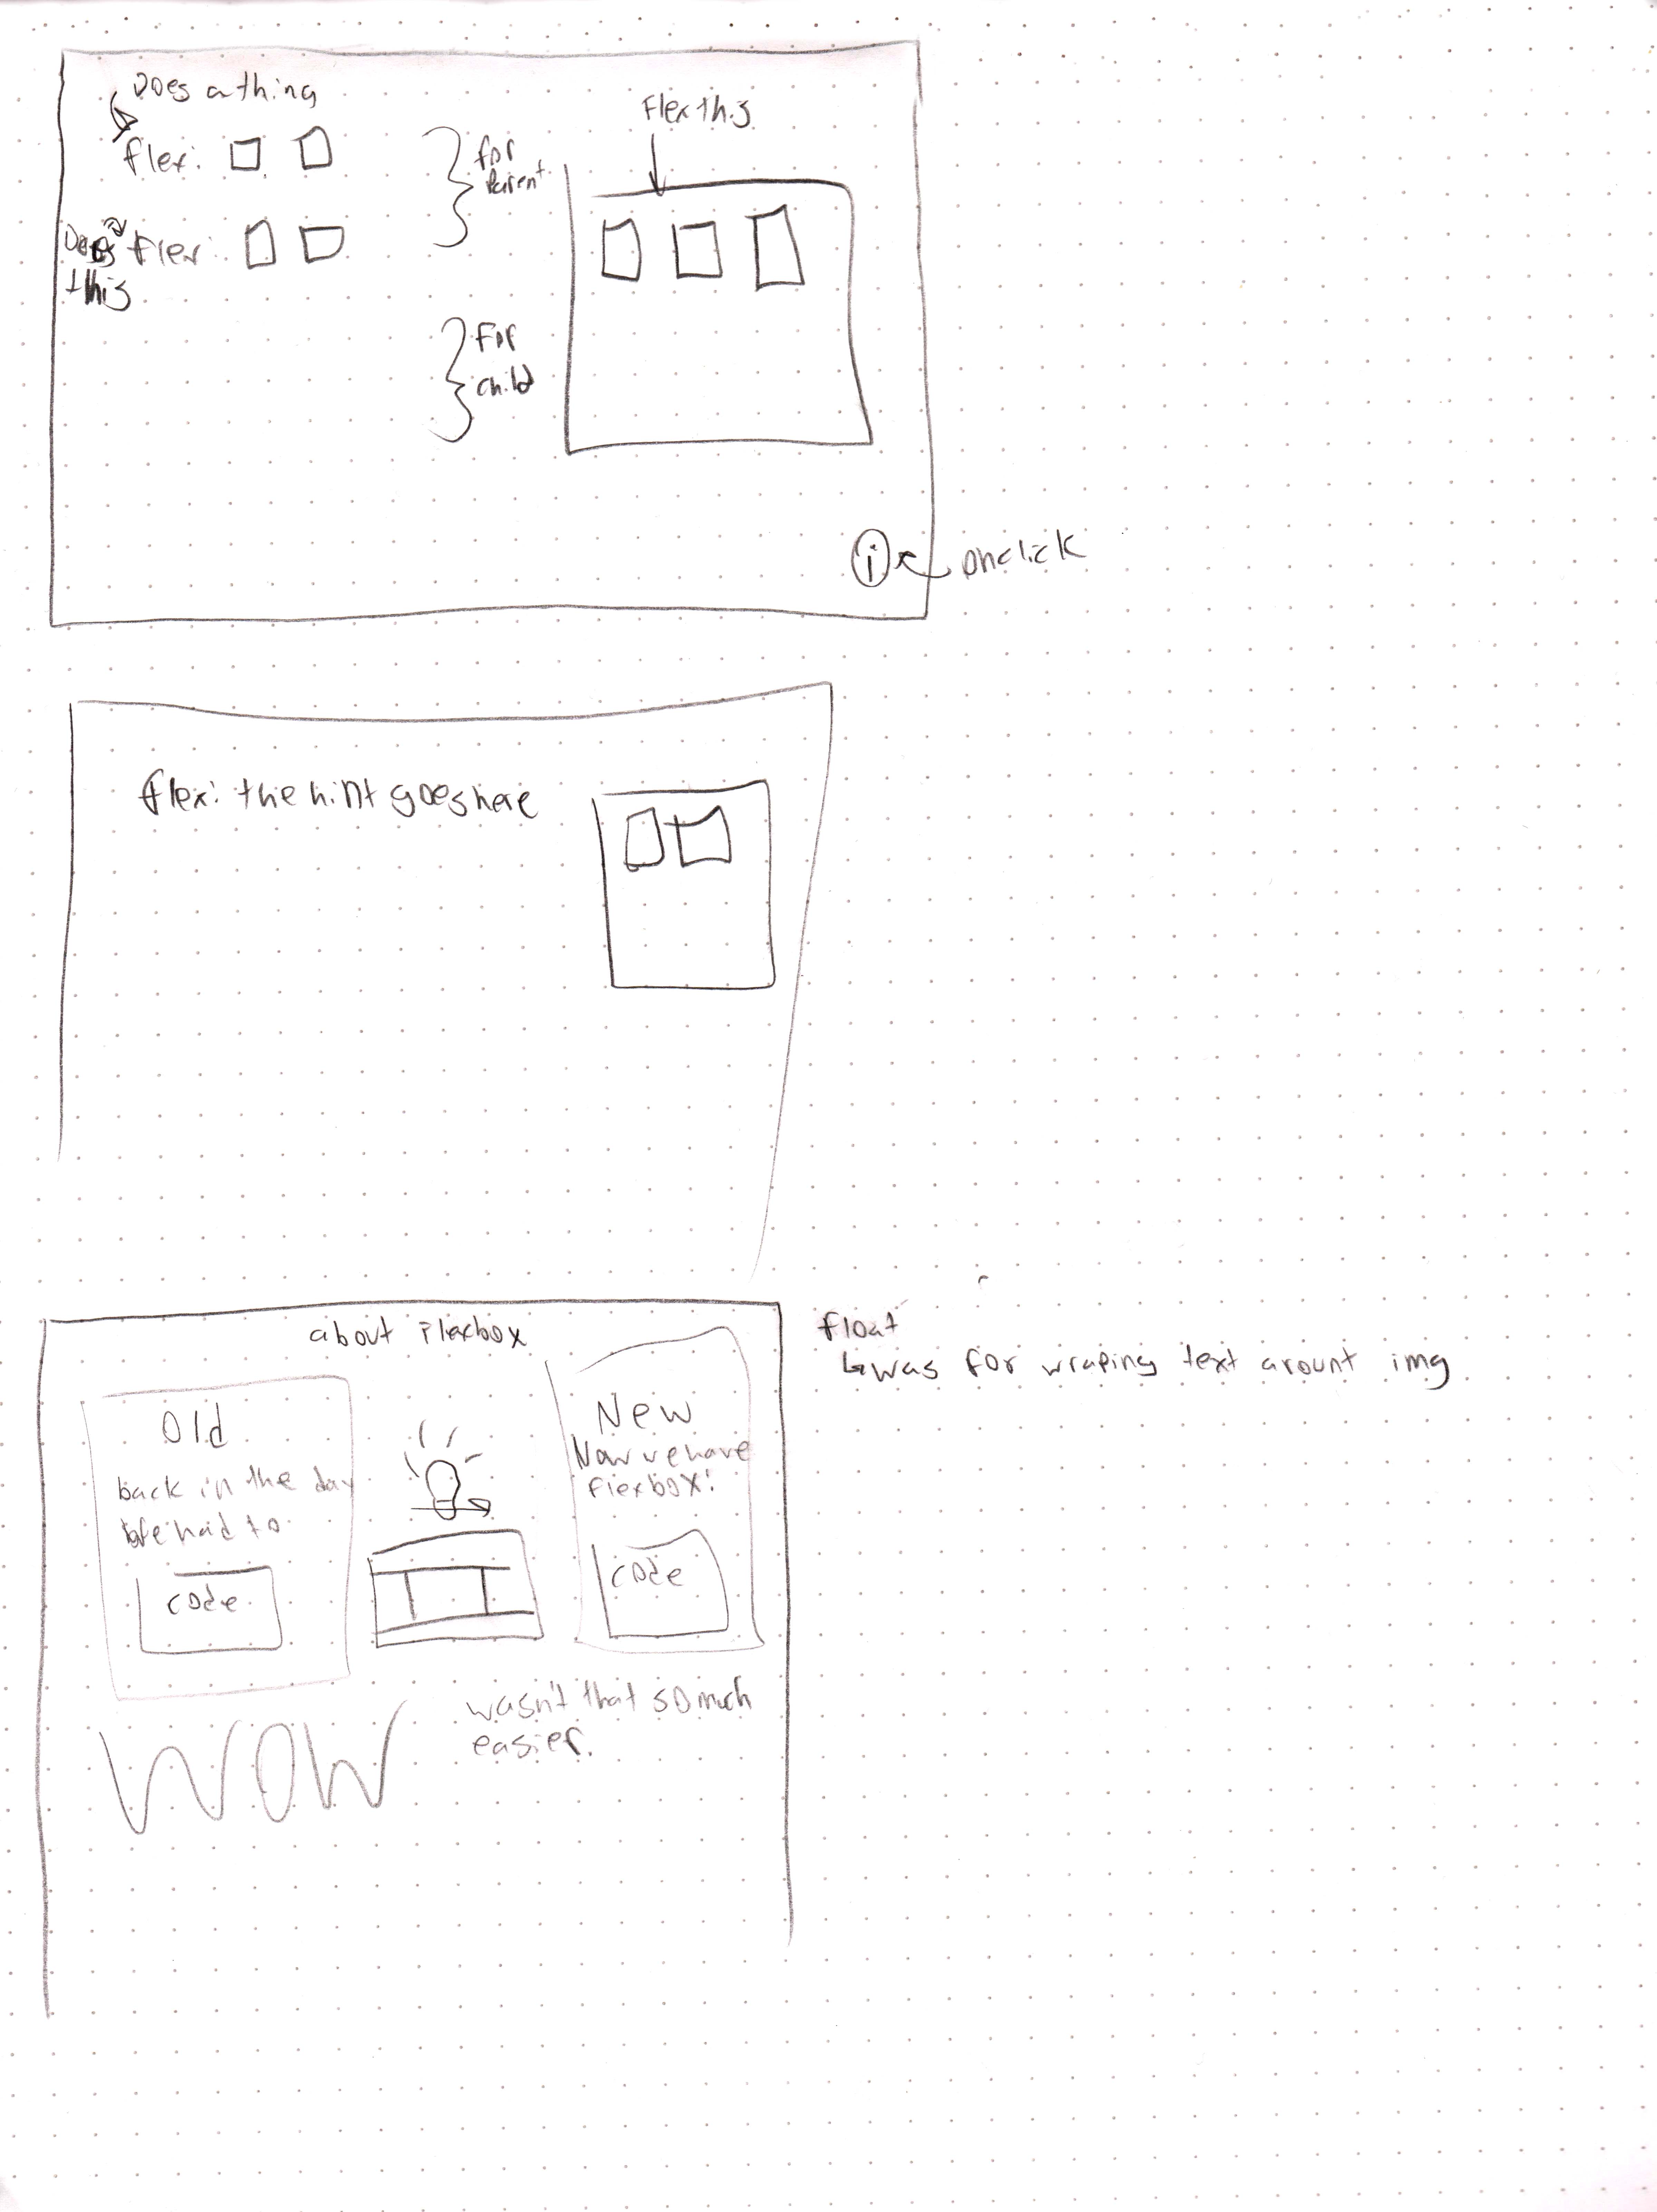 Does a thing
flex:
Does
this
flex:
for
Parent
for
child
Flex this
i
onclick
flex: the hint goes here
about flexbox
Old
back in the day
we had to
code
New
Now we have
flexbox!
code
WOW
wasn't that so much
easier.
float
was for wraping text arount img